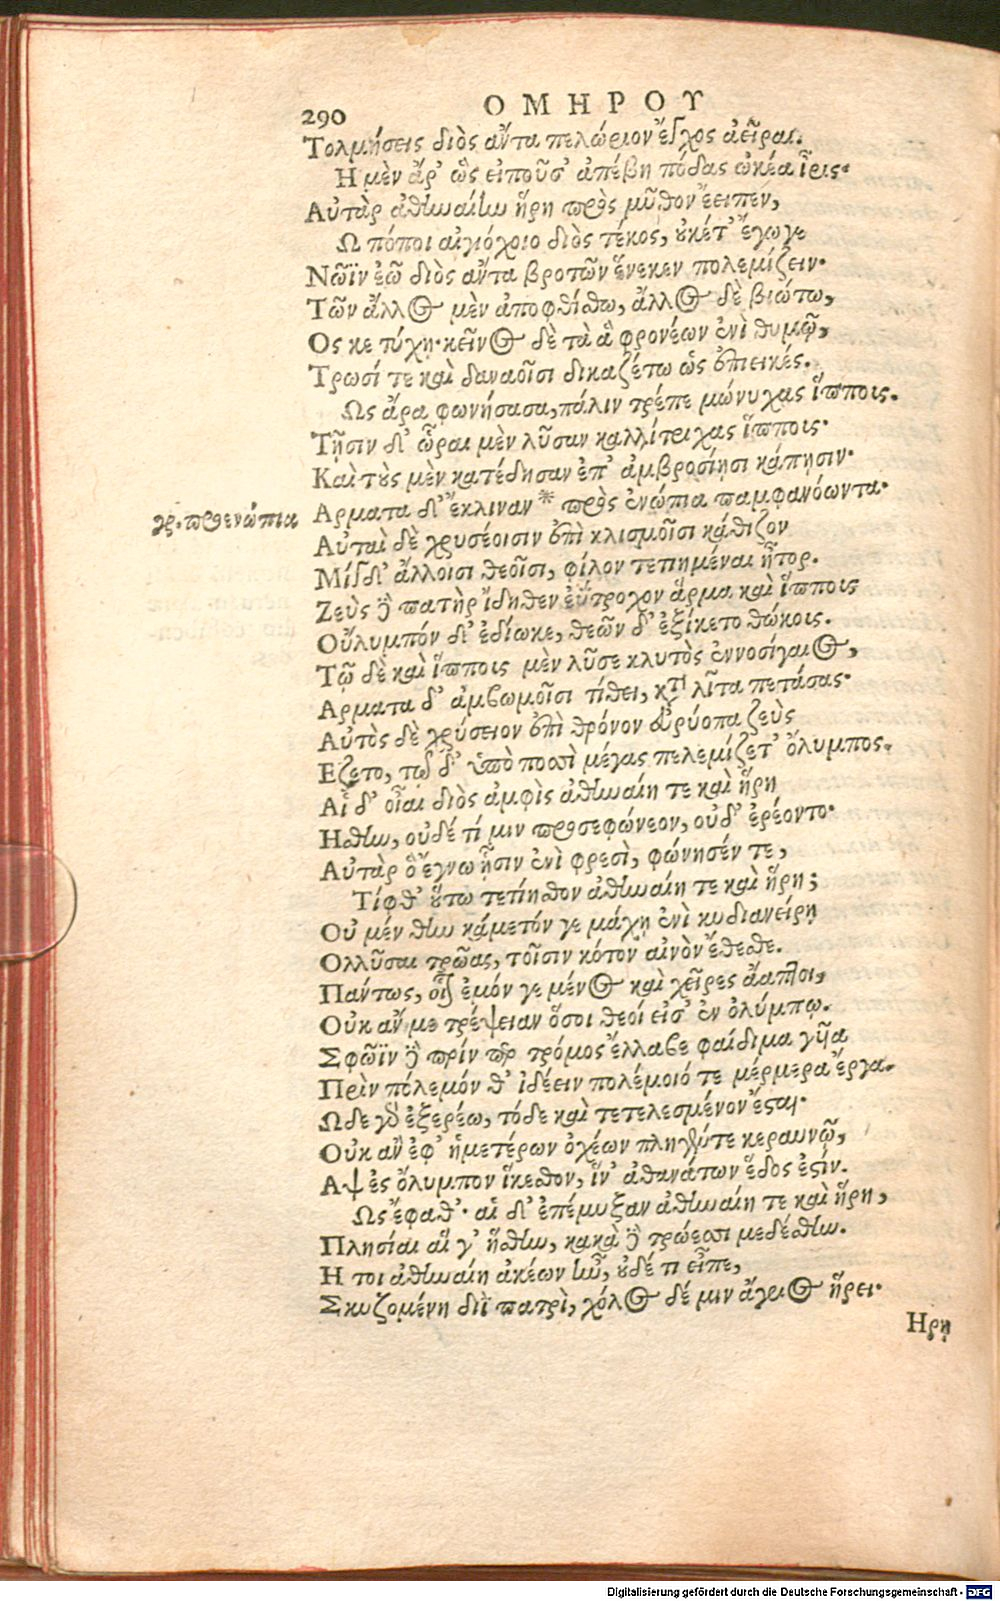 290 ΟΜΗΡΟΥ
Τολμήσεις διὸς ἄντα πελώριον ἔγχος ἀεῖραι.
Η μὲν ἄρ' ὣς εἰποῦσ' ἀπέβη πόδας ὠκέα ἶρις·
Αὐτὰρ ἀθηναίην ἥρη πρὸς μῦθον ἔειπεν,
Ω πόποι αἰγιόχοιο διὸς τέκος, οὐκέτ' ἔγωγε
Νῶϊν ἐῶ διὸς ἄντα βροτῶν ἕνεκεν πολεμίζειν·
Τῶν ἄλλος μὲν ἀποφθίσθω, ἄλλος δὲ βιώτω,
Ος κε τύχῃ· κεῖνος δὲ τὰ ἃ φρονέων ἐνὶ θυμῷ,
Τρωσί τε καὶ δαναοῖσι δικαζέτω ὡς ἐπιεικές.
Ως ἄρα φωνήσασα, πάλιν τρέπε μώνυχας ἵππους.
Τῇσιν δ' ὧραι μὲν λῦσαν καλλίτριχας ἵππους·
Καὶ τοὺς μὲν κατέδησαν ἐπ' ἀμβροσίῃσι κάπῃσιν·
Αρματα δ' ἔκλιναν * πρὸς ἐνώπια παμφανόωντα·
γρ. προενώπια
Αὐταὶ δὲ χρυσέοισιν ἐπὶ κλισμοῖσι κάθιζον
Μίγδ' ἄλλοισι θεοῖσι, φίλον τετιημέναι ἦτορ.
Ζεὺς δὲ πατὴρ ἴδηθεν ἐΰτροχον ἅρμα καὶ ἵππους
Οὔλυμπόν δ' ἐδίωκε, θεῶν δ' ἐξίκετο θώκους.
Τῷ δὲ καὶ ἵππους μὲν λῦσε κλυτὸς ἐννοσίγαιος,
Αρματα δ' ἀμβωμοῖσι τίθει, κατὰ λῖτα πετάσας·
Αὐτὸς δὲ χρύσειον ἐπὶ θρόνον εὐρύοπα ζεὺς
Εζετο, τῷ δ' ὑπὸ ποσσὶ μέγας πελεμίζετ' ὄλυμπος.
Αἱ δ' οἶαι διὸς ἀμφὶς ἀθηναίη τε καὶ ἥρη
Ησθην, οὐδέ τί μιν προσεφώνεον, οὐδ' ἐρέοντο·
Αὐτὰρ ὃ ἔγνω ᾗσιν ἐνὶ φρεσὶ, φώνησέν τε,
Τίφθ' οὕτω τετίησθον ἀθηναίη τε καὶ ἥρη;
Οὐ μέν θην κάμετόν γε μάχῃ ἐνὶ κυδιανείρῃ
Ολλῦσαι τρῶας, τοῖσιν κότον αἰνὸν ἔθεσθε.
Πάντως, οἷον ἐμόν γε μένος καὶ χεῖρες ἄαπτοι,
Οὐκ ἄν με τρέψειαν ὅσοι θεοί εἰσ' ἐν ὀλύμπῳ.
Σφῶϊν δὲ πρίν περ τρόμος ἔλλαβε φαίδιμα γυῖα
Πρὶν πόλεμόν θ' ἰδέειν πολέμοιό τε μέρμερα ἔργα.
Ωδε γὰρ ἐξερέω, τόδε καὶ τετελεσμένον ἔσται·
Οὐκ ἂν ἐφ' ἡμετέρων ὀχέων πληγέντε κεραυνῷ,
Αψ ἐς ὄλυμπον ἵκεσθον, ἵν' ἀθανάτων ἕδος ἐστίν.
Ως ἔφαθ'· αἱ δ' ἐπέμυξαν ἀθηναίη τε καὶ ἥρη,
Πλησίαι αἵ γ' ἥσθην, κακὰ δὲ τρώεσσι μεδέσθην.
Η τοι ἀθηναίη ἀκέων ἦν, οὐδέ τι εἶπε,
Σκυζομένη διῒ πατρὶ, χόλος δέ μιν ἄγριος ᾕρει·
Ηρῃ
Digitalisierung gefördert durch die Deutsche Forschungsgemeinschaft - DFG